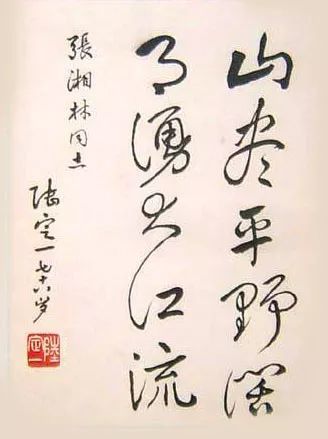 山尽平野阔
月湧大江流
張湘林同志
陆定一七十八岁
陸定一